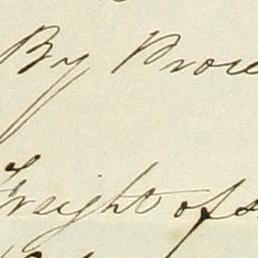 By Proce
Freight of s